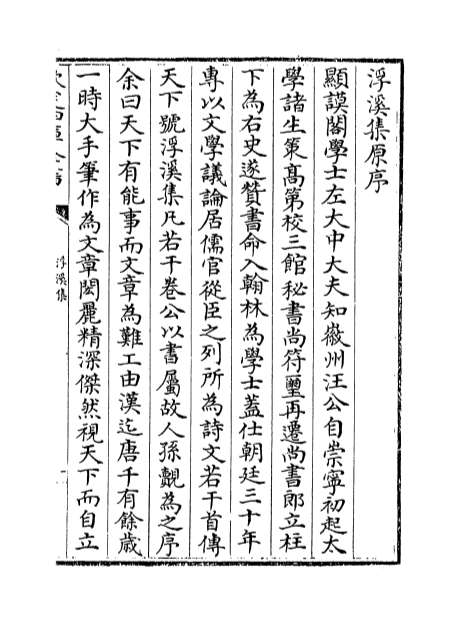 浮溪集原序
顯謨閣學士左大中大夫知徽州汪公自崇寧初起太
學諸生策髙第校三館秘書尚符璽再遷尚書郎立柱
下為右史遂贊書命入翰林為學士蓋仕朝廷三十年
專以文學議論居儒官從臣之列所為詩文若干首傳
天下號浮溪集凡若干卷公以書屬故人孫覿為之序
余曰天下有能事而文章為難工由漢迄唐千有餘歲
一時大手筆作為文章閎麗精深傑然視天下而自立
浮溪集